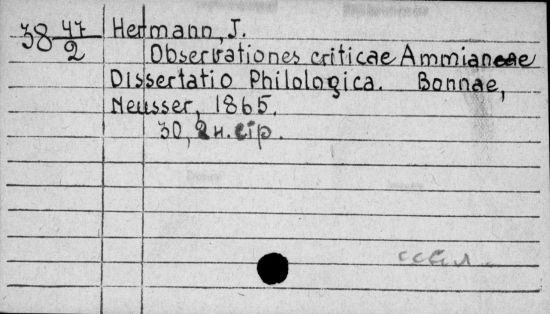 38 47/2 Hermann, J.
Observationes criticae Ammianeae
Dissertatio Philologica. Bonnae,
Neusser, 1865.
30, 2 н. стр.